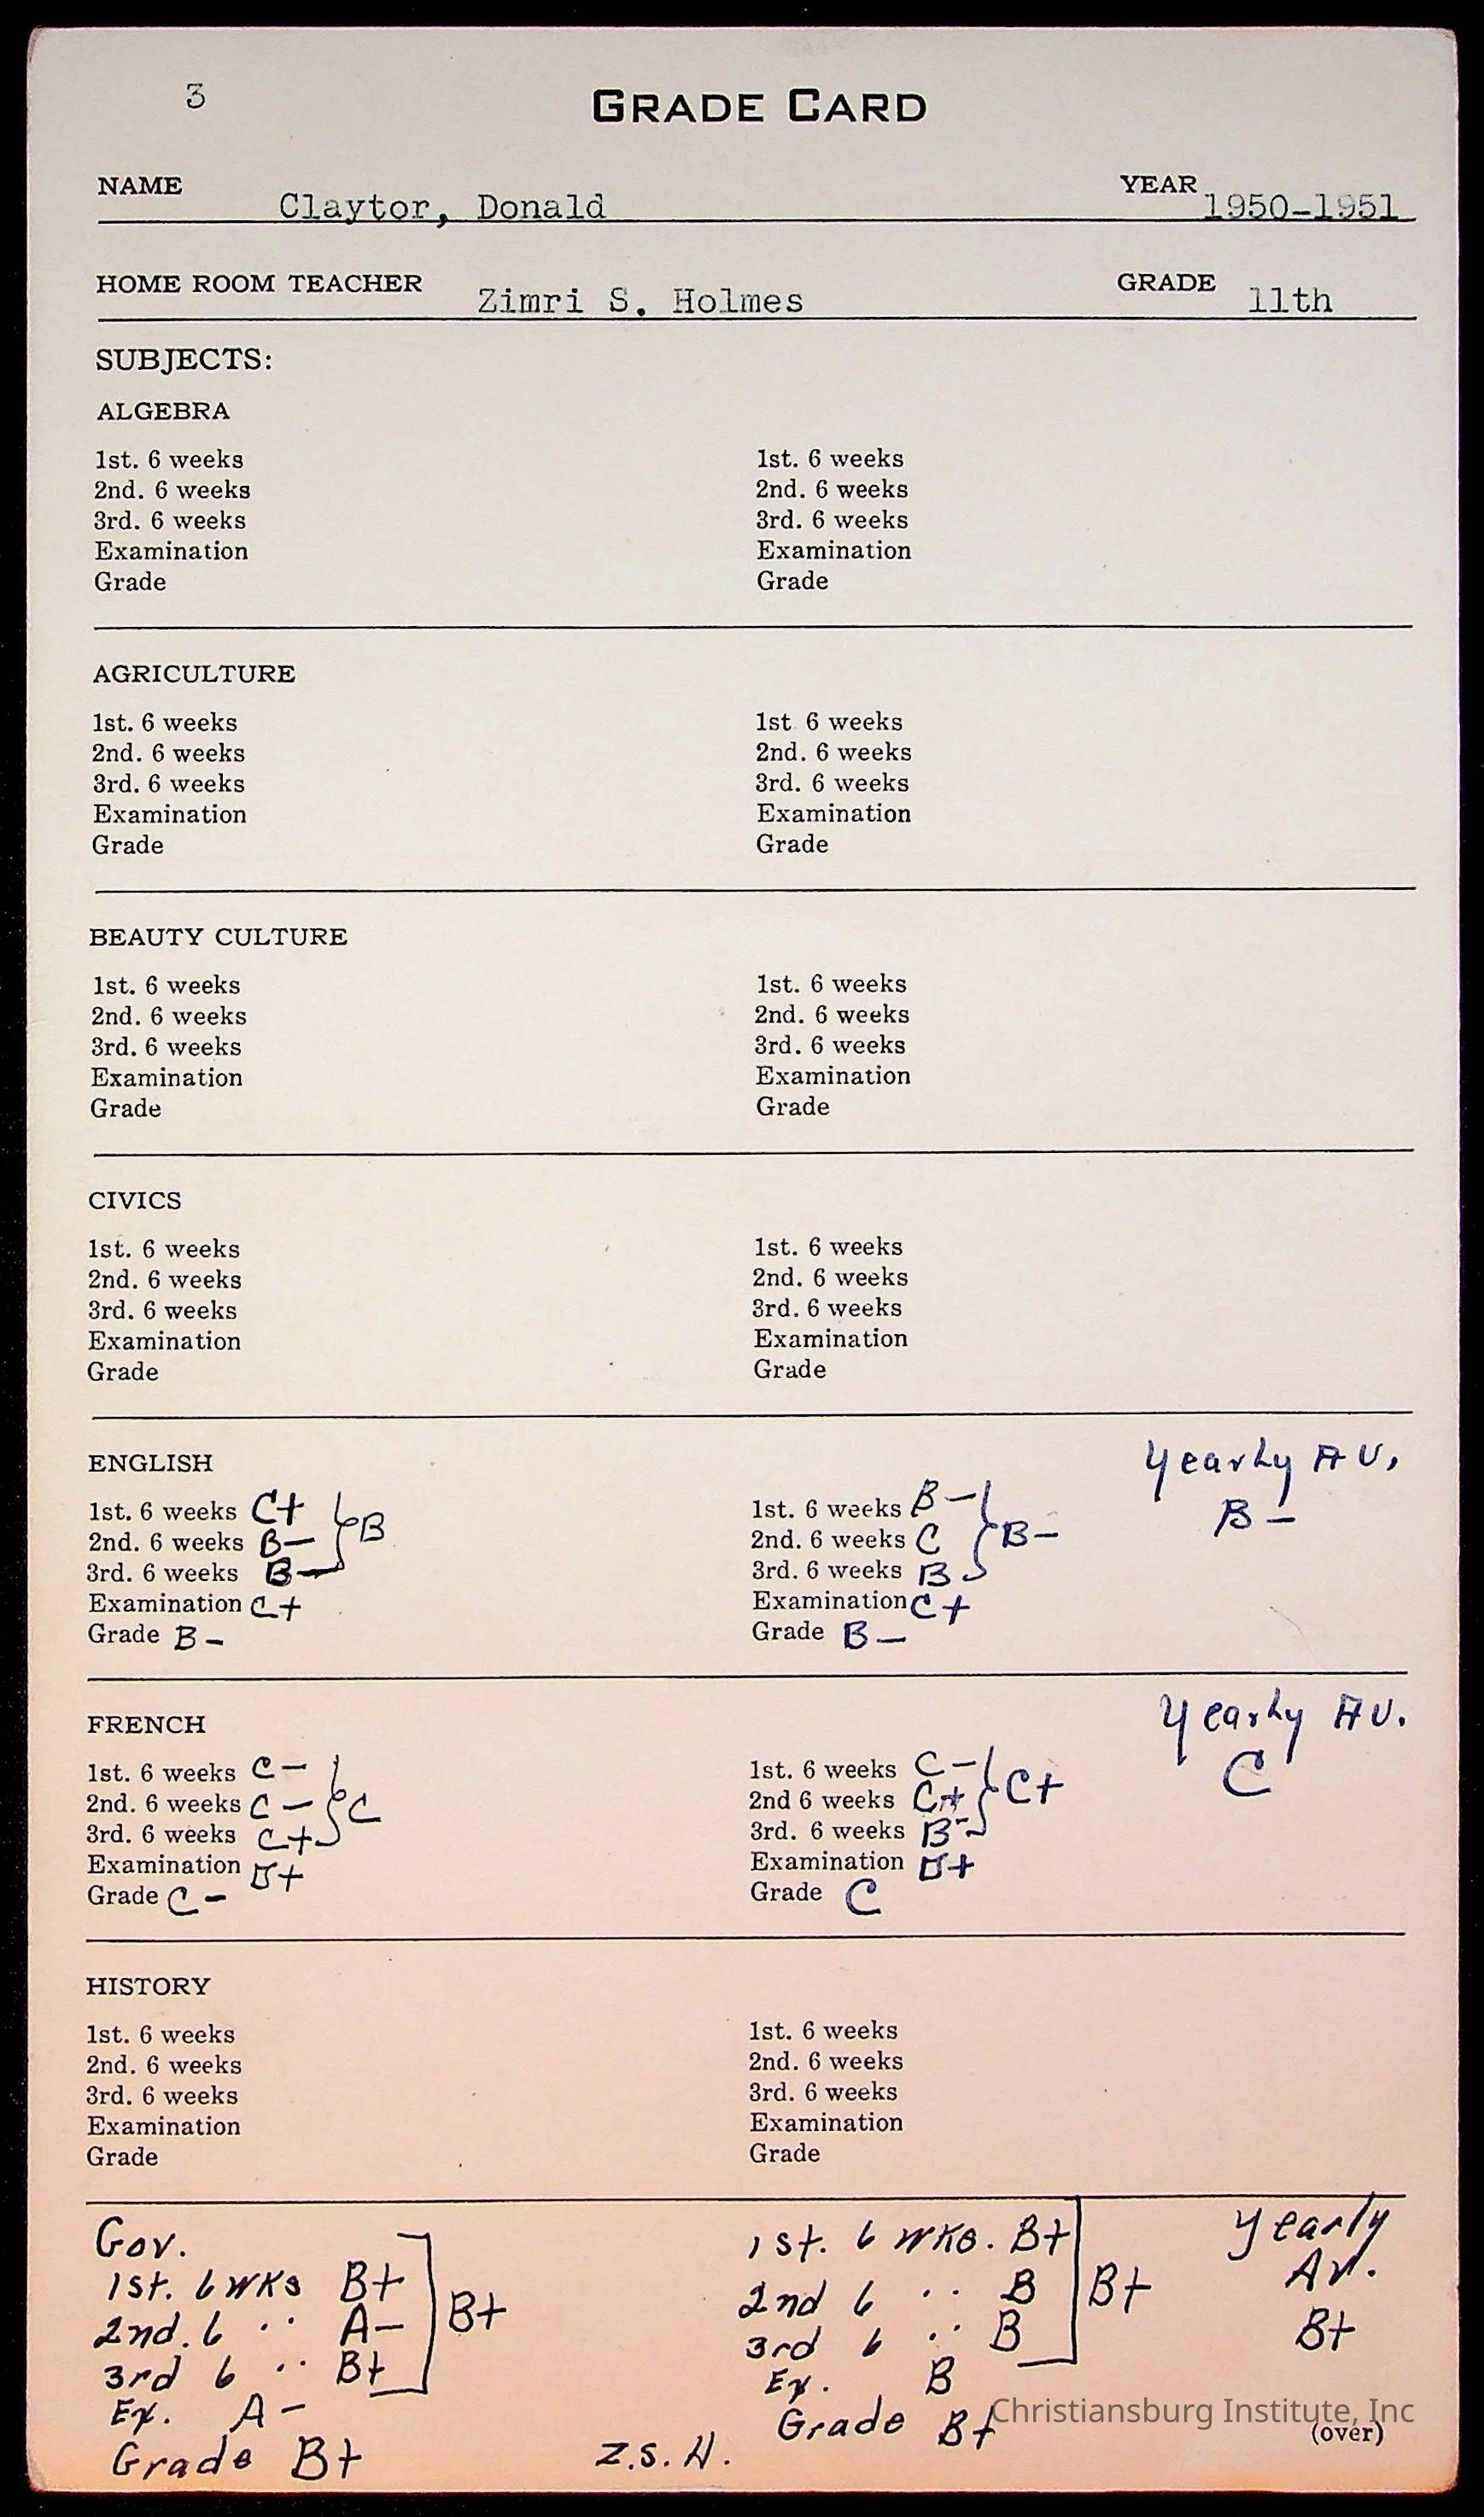 3
GRADE CARD
NAME Claytor, Donald YEAR 1950-1951
HOME ROOM TEACHER Zimri S. Holmes GRADE 11th
SUBJECTS:
ALGEBRA
1st. 6 weeks 1st. 6 weeks
2nd. 6 weeks 2nd. 6 weeks
3rd. 6 weeks 3rd. 6 weeks
Examination Examination
Grade Grade
AGRICULTURE
1st. 6 weeks 1st 6 weeks
2nd. 6 weeks 2nd. 6 weeks
3rd. 6 weeks 3rd. 6 weeks
Examination Examination
Grade Grade
BEAUTY CULTURE
1st. 6 weeks 1st. 6 weeks
2nd. 6 weeks 2nd. 6 weeks
3rd. 6 weeks 3rd. 6 weeks
Examination Examination
Grade Grade
CIVICS
1st. 6 weeks 1st. 6 weeks
2nd. 6 weeks 2nd. 6 weeks
3rd. 6 weeks 3rd. 6 weeks
Examination Examination
Grade Grade
ENGLISH Yearly AV.
1st. 6 weeks C+ 1st. 6 weeks B- B-
2nd. 6 weeks B- B 2nd. 6 weeks C B-
3rd. 6 weeks B- 3rd. 6 weeks B
Examination C+ Examination C+
Grade B- Grade B-
FRENCH Yearly AV.
1st. 6 weeks C- 1st. 6 weeks C- C
2nd. 6 weeks C- C 2nd 6 weeks C+ C+
3rd. 6 weeks C+ 3rd. 6 weeks B-
Examination D+ Examination D+
Grade C- Grade C
HISTORY
1st. 6 weeks 1st. 6 weeks
2nd. 6 weeks 2nd. 6 weeks
3rd. 6 weeks 3rd. 6 weeks
Examination Examination
Grade Grade
Gov. 1st. 6 wks. B+ Yearly
1st. 6 wks B+ 2nd 6 " B B+ Av.
2nd. 6 " A- B+ 3rd 6 " B B+
3rd 6 " B+ Ex. B
Ex. A- Grade B+ Christiansburg Institute, Inc
Grade B+ Z.S.H. (over)